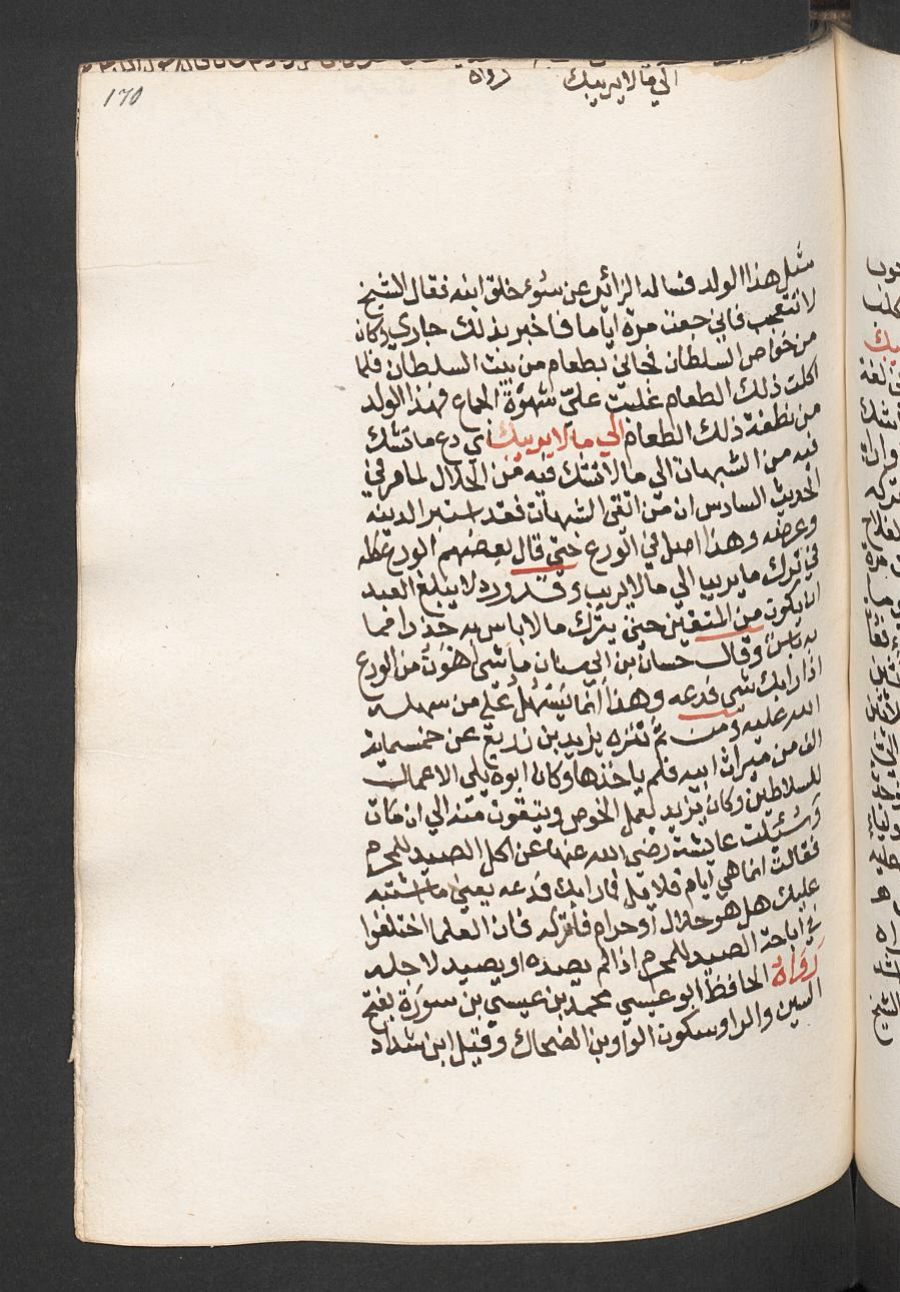 170
الي مالا يريبك رواه
مثل هذا الولد فساله الزائر عن سوء خلق ابنه فقال الشيخ
لا تتعجب فاني جعت مرة اياما فاخبر بذلك جاري وكان
من خواص السلطان فجاني بطعام من بيت السلطان فلما
اكلت ذلك الطعام غلبت عليّ شهوة الجماع فهذا الولد
من نطفة ذلك الطعام الي مالا يريبك اي دع ما تشك
فيه من الشبهات الي مالا تشك فيه من الحلال لما مر في
الحديث السادس ان من اتقي الشبهات فقد استبرا لدينه
وعرضه وهذا اصل في الورع حتي قال بعضهم الورع كله
في ترك ما يريب الي مالا يريب وقد ورد لا يبلغ العبد
ان يكون من المتقين حتي يترك مالا باس به حذرا مما
به باس وقال حسان بن ابي سنان ما شي اهون من الورع
اذا رابك شي فدعه وهذا انما يسهل علي من سهله
الله عليه ومن ثم تنزه يزيد بن زريع عن خمسماية
الف من ميراث ابيه فلم ياخذها وكان ابوه يلي الاعمال
للسلاطين وكان يزيد يعمل الخوص ويتقوت منه الي ان مات
وسئلت عايشة رضي الله عنها عن اكل الصيد للمحرم
فقالت انما هي ايام قلايل فما رابك فدعه يعني ما اشتبه
عليك هل هو حلال او حرام فاتركه فان العلما اختلفوا
في اباحة الصيد للمحرم اذا لم يصده او يصيد لاجله
رواه الحافظ ابو عيسي محمد بن عيسي بن سورة بفتح
السين والرا وسكون الواو بن الضحاك وقيل ابن شداد